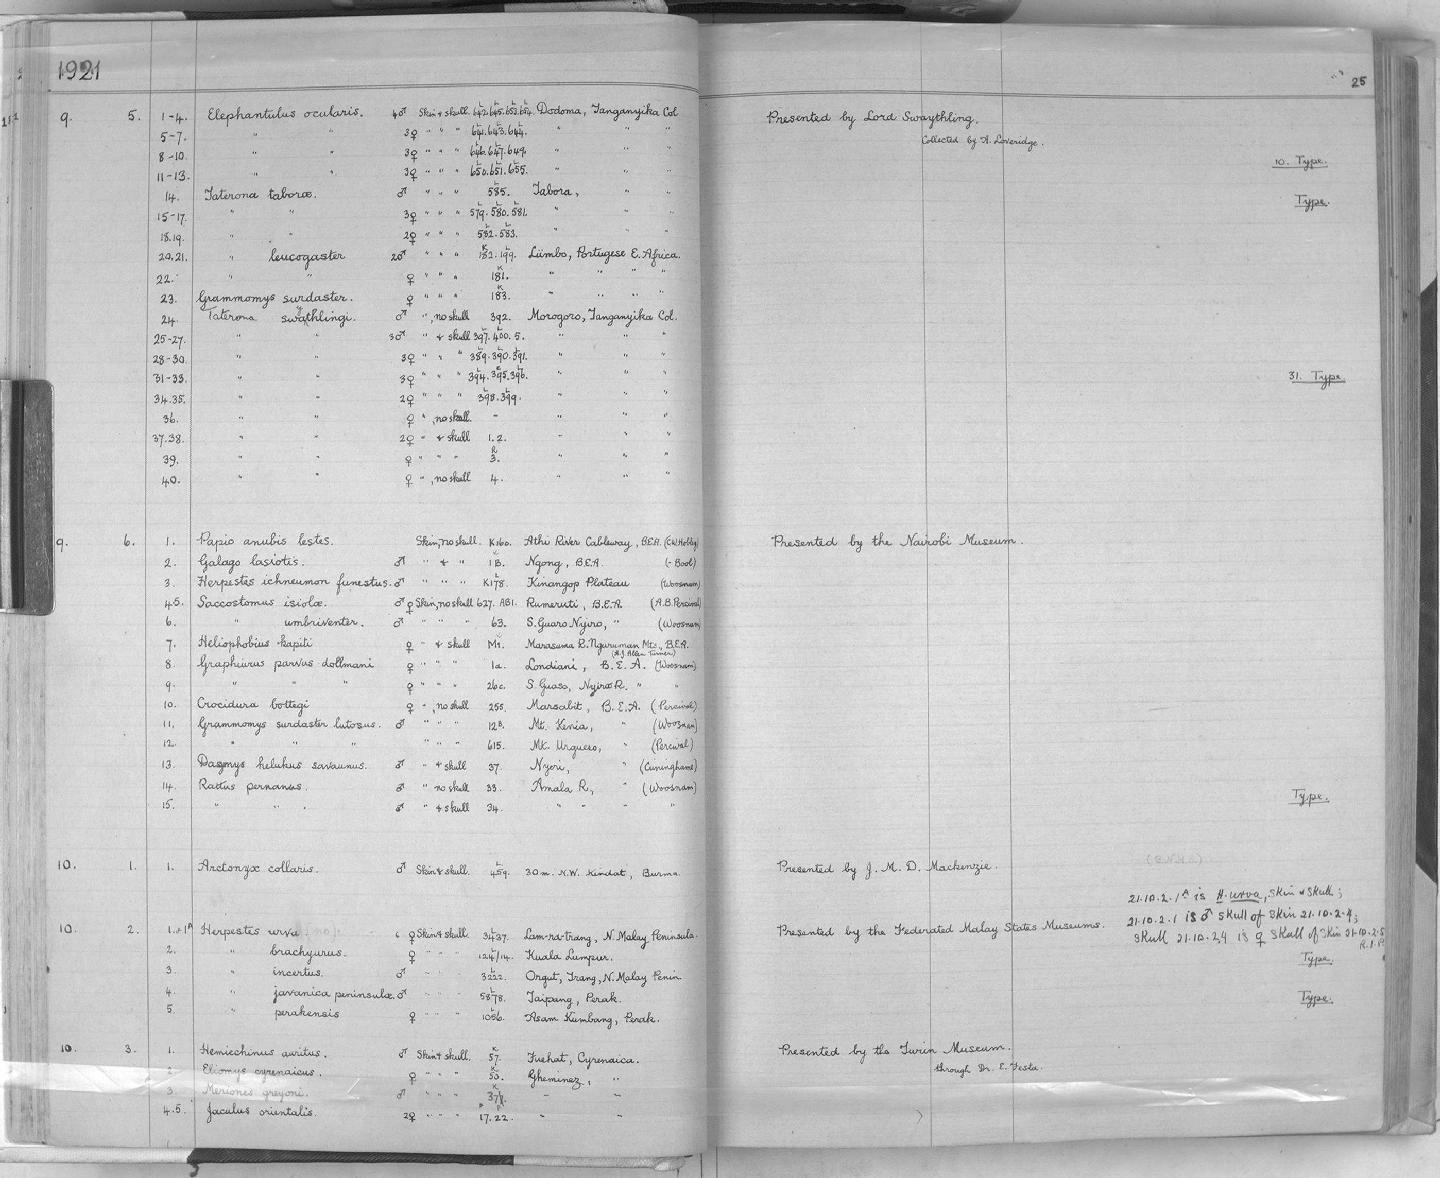 1921
25
9. 5. 1-4. Elephantulus ocularis. 4♂ Skin & skull. 642.645.653.654. Dodoma, Tanganyika Col Presented by Lord Swaythling.
5-7. " " 3♀ " " " 641.643.644. " " " Collected by A. Loveridge.
8-10. " " 3♀ " " " 646.647.649. " " " 10. Type.
11-13. " " 3♀ " " " 650.651.655. " " "
14. Taterona taboræ. ♂ " " " 585. Tabora, " " Type.
15-17. " " 3♀ " " " 579.580.581. " " "
18.19. " " 2♀ " " " 582.583. " " "
20.21. " leucogaster 2♂ " " " 182.199. Lumbo, Portugese E. Africa.
22. " " ♀ " " " 181. " " " "
23. Grammomys surdaster. ♀ " " " 183. " " " "
24. Taterona swaythlingi. ♂ ", no skull 392. Morogoro, Tanganyika Col.
25-27. " " 3♂ " & skull 397.400.5. " " "
28-30. " " 3♀ " " " 389.390.391. " " "
31-33. " " 3♀ " " " 394.395.396. " " " 31. Type
34.35. " " 2♀ " " " 398.399. " " "
36. " " ♀ ", no skull. " " " "
37.38. " " 2♀ " & skull 1.2. " " "
39. " " ♀ " " " 3. " " "
40. " " ♀ ", no skull 4. " " "
9. 6. 1. Papio anubis lestes. Skin, no skull. K160. Athi River Cableway, B.E.A. (C.W. Hobley) Presented by the Nairobi Museum.
2. Galago lasiotis. ♂ " & " 1B. Ngong, B.E.A. (- Bool)
3. Herpestes ichneumon funestus. ♂ " " " K178. Kinangop Plateau (Woosnam)
4.5. Saccostomus isiolæ. ♂♀ Skin, no skull 627. AB1. Rumeruti, B.E.A. (A.B. Percival)
6. " umbriventer. ♂ " " " 63. S. Guaro Nyiro, " (Woosnam)
7. Heliophobius kapiti ♀ " & skull M1. Marasuma R. Nguruman Mts., B.E.A.
(H.J. Allen Turner)
8. Graphiurus parvus dollmani ♀ " " " 1a. Londiani, B.E.A. (Woosnam)
9. " " " ♀ " " " 26c. S. Guaso, Nyiro R. " "
10. Crocidura bottegi ♀ ", no skull 255. Marsabit, B.E.A. (Percival)
11. Grammomys surdaster lutosus. ♂ " " " 12B. Mt. Kenia, " (Woosnam)
12. " " " " " " 615. Mt. Urguess, " (Percival)
13. Dasymys helukus savannus. ♂ " & skull 37. Nyeri, " (Cuninghame)
14. Rattus pernanus. ♂ " no skull 33. Amala R, " (Woosnam) Type.
15. " " ♂ " & skull 34. " " " "
10. 1. 1. Arctonyx collaris. ♂ Skin & skull. 459. 30 m. N.W. Kindat, Burma. Presented by J. M. D. Mackenzie. (B.N.H.S)
21.10.2.1ᴬ is H. urva, skin & skull;
21.10.2.1 is ♂ skull of skin 21.10.2.4;
skull 21.10.2.4 is ♀ skull of skin 21.10.2.5
R.I.P.
10. 2. 1.+1ᴬ Herpestes urva ♀ Skin & skull. 3437. Lam-ra-trang, N. Malay Peninsula. Presented by the Federated Malay States Museums.
2. " brachyurus. ♀ " " " 124/14. Kuala Lumpur. Type.
3. " incertus. ♂ " " " 3222. Orgut, Trang, N. Malay Penin.
4. " javanica peninsulæ. ♂ " " " 5878. Taipeng, Perak. Type.
5. " perakensis ♀ " " " 1056. Asam Kumbang, Perak.
10. 3. 1. Hemiechinus auritus. ♂ Skin & skull. 57. Fuehat, Cyrenaica. Presented by the Turin Museum.
2. Eliomys cyrenaicus. ♀ " " " 53. Gheminez, " through Dr. E. Festa.
3. Meriones greyoni. ♂ " " " 378. " "
4.5. Jaculus orientalis. 2♀ " " " 17.22. " "